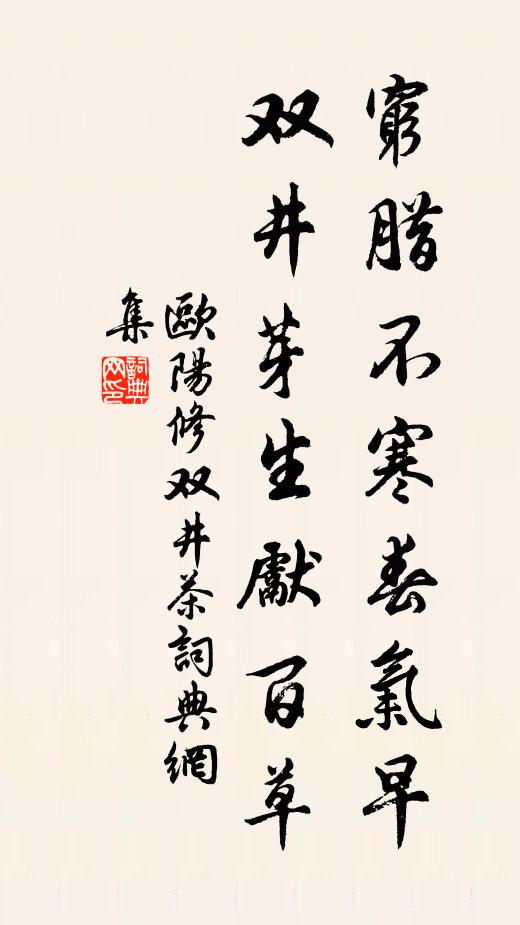 窮腊不寒春氣早
双井芽生獻百草
歐陽修双井茶詞典網
集
詞典
网印